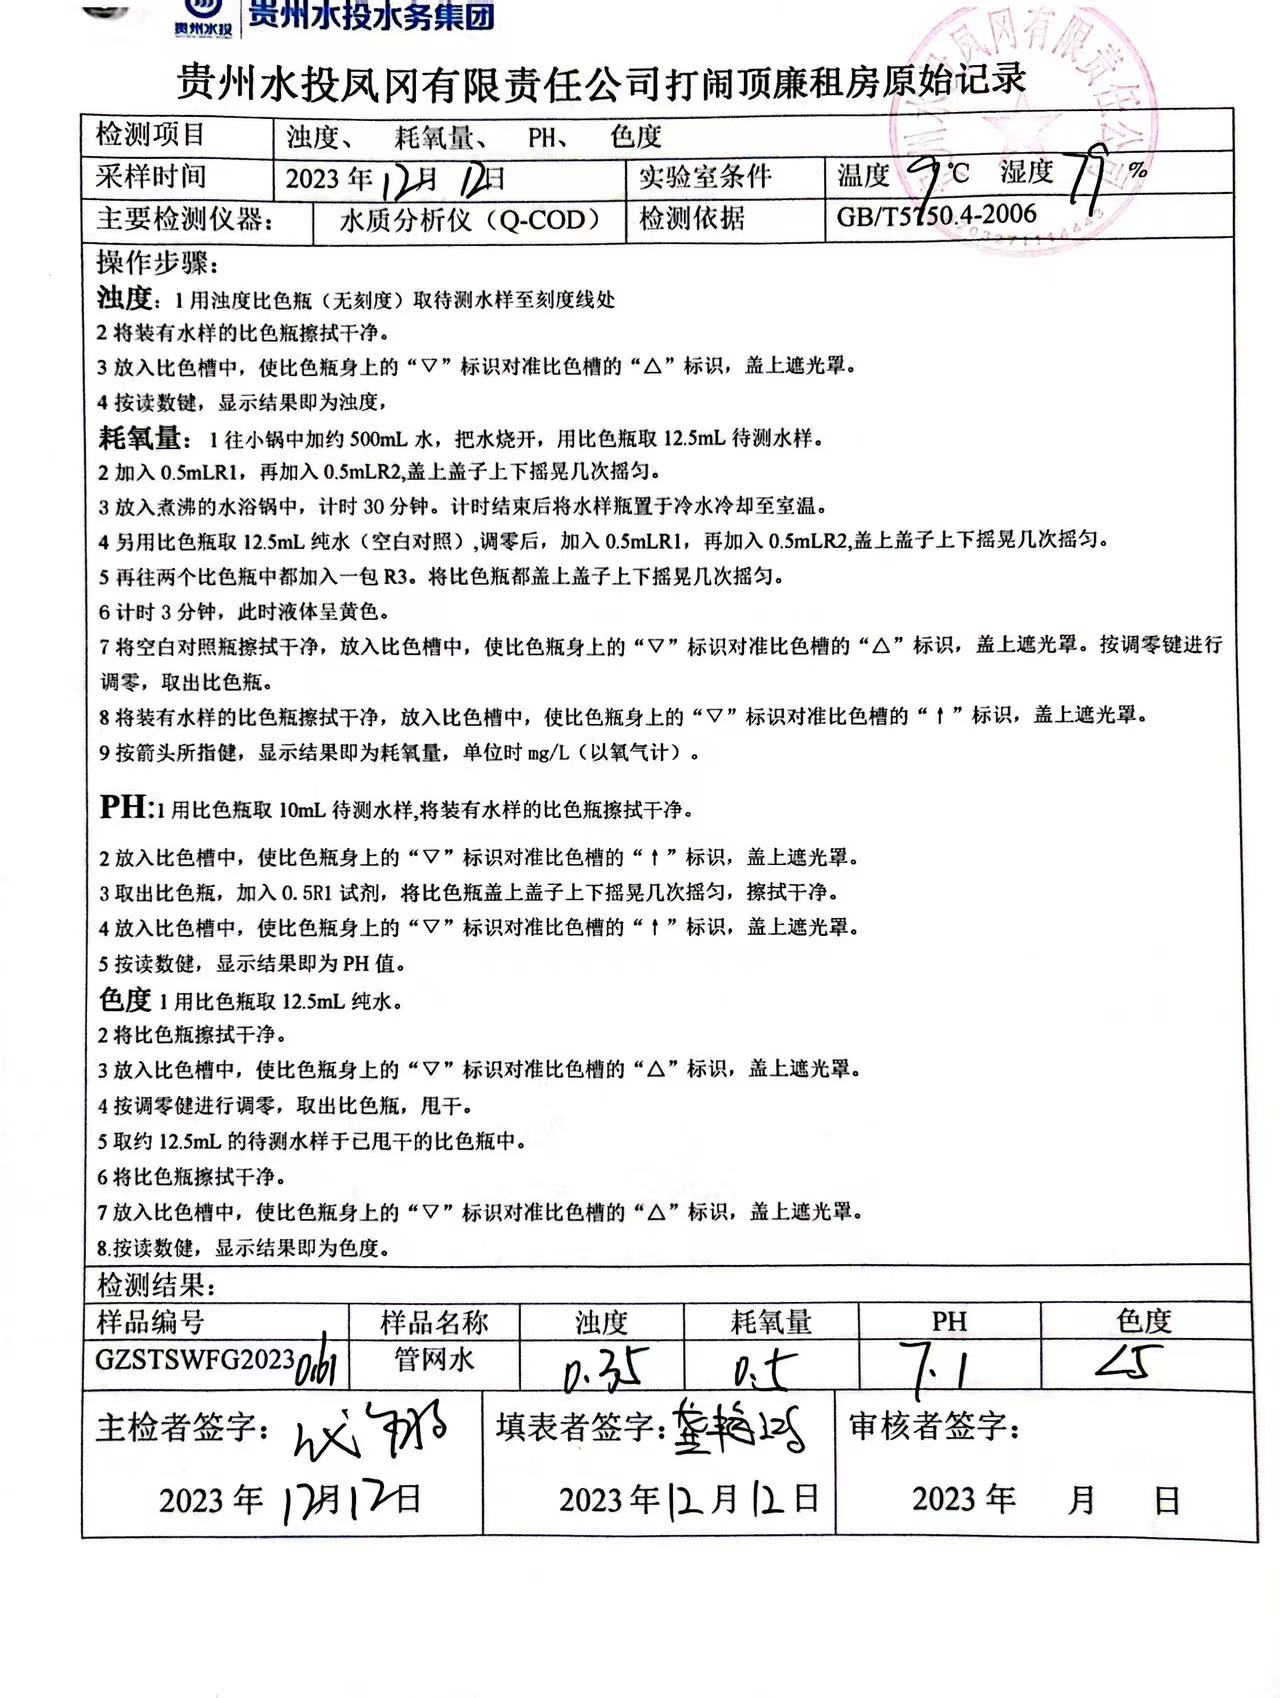 贵州水投
贵州水投水务集团
贵州水投凤冈有限责任公司打闹顶廉租房原始记录
检测项目 浊度、 耗氧量、 PH、 色度
采样时间 2023年12月12日 实验室条件 温度9℃ 湿度79%
主要检测仪器： 水质分析仪（Q-COD） 检测依据 GB/T5750.4-2006
操作步骤：
浊度：1用浊度比色瓶（无刻度）取待测水样至刻度线处
2将装有水样的比色瓶擦拭干净。
3放入比色槽中，使比色瓶身上的“▽”标识对准比色槽的“△”标识，盖上遮光罩。
4按读数键，显示结果即为浊度，
耗氧量：1往小锅中加约500mL水，把水烧开，用比色瓶取12.5mL待测水样。
2加入0.5mLR1，再加入0.5mLR2,盖上盖子上下摇晃几次摇匀。
3放入煮沸的水浴锅中，计时30分钟。计时结束后将水样瓶置于冷水冷却至室温。
4另用比色瓶取12.5mL纯水（空白对照）,调零后，加入0.5mLR1，再加入0.5mLR2,盖上盖子上下摇晃几次摇匀。
5再往两个比色瓶中都加入一包R3。将比色瓶都盖上盖子上下摇晃几次摇匀。
6计时3分钟，此时液体呈黄色。
7将空白对照瓶擦拭干净，放入比色槽中，使比色瓶身上的“▽”标识对准比色槽的“△”标识，盖上遮光罩。按调零键进行
调零，取出比色瓶。
8将装有水样的比色瓶擦拭干净，放入比色槽中，使比色瓶身上的“▽”标识对准比色槽的“↑”标识，盖上遮光罩。
9按箭头所指健，显示结果即为耗氧量，单位时mg/L（以氧气计）。
PH:1用比色瓶取10mL待测水样,将装有水样的比色瓶擦拭干净。
2放入比色槽中，使比色瓶身上的“▽”标识对准比色槽的“↑”标识，盖上遮光罩。
3取出比色瓶，加入0.5R1试剂，将比色瓶盖上盖子上下摇晃几次摇匀，擦拭干净。
4放入比色槽中，使比色瓶身上的“▽”标识对准比色槽的“↑”标识，盖上遮光罩。
5按读数健，显示结果即为PH值。
色度1用比色瓶取12.5mL纯水。
2将比色瓶擦拭干净。
3放入比色槽中，使比色瓶身上的“▽”标识对准比色槽的“△”标识，盖上遮光罩。
4按调零健进行调零，取出比色瓶，甩干。
5取约12.5mL的待测水样于已甩干的比色瓶中。
6将比色瓶擦拭干净。
7放入比色槽中，使比色瓶身上的“▽”标识对准比色槽的“△”标识，盖上遮光罩。
8.按读数健，显示结果即为色度。
检测结果：
样品编号 样品名称 浊度 耗氧量 PH 色度
GZSTSWFG2023061 管网水 0.35 0.5 7.1 <5
主检者签字： 填表者签字： 审核者签字：
2023年12月12日 2023年12月12日 2023年 月 日